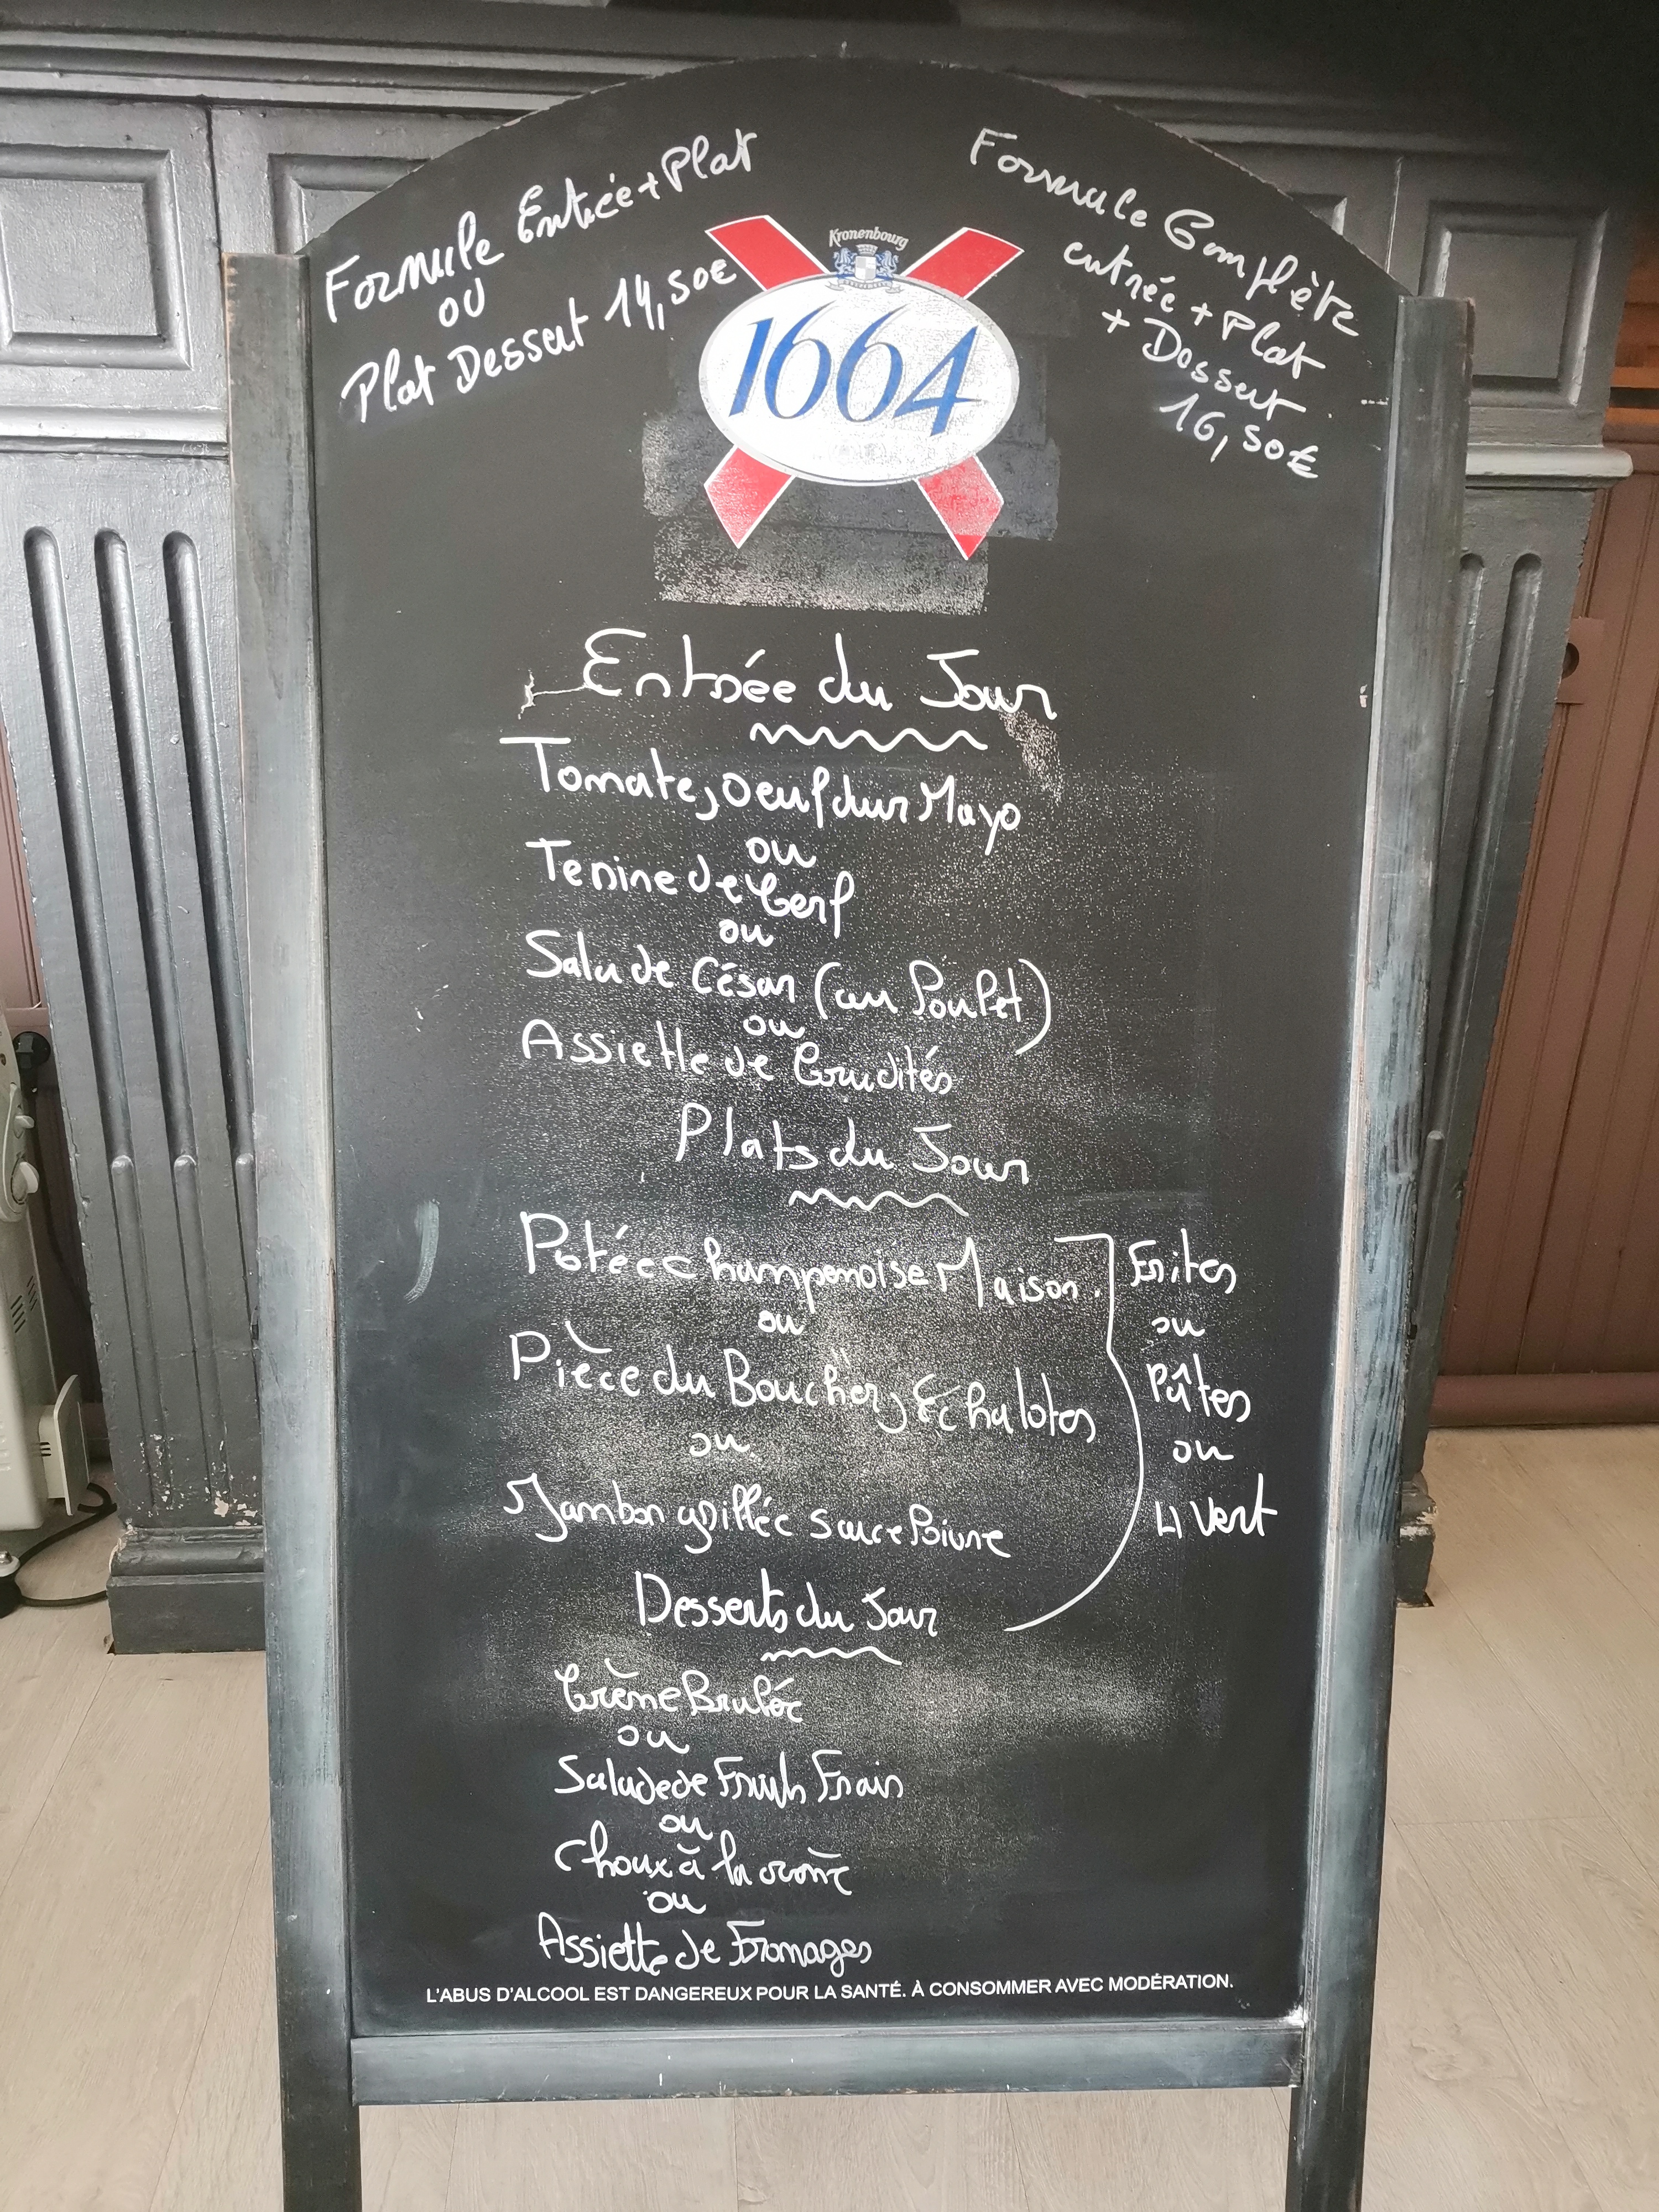 Formule Entrée + Plat
OU
Plat Dessert 14,50€
Formule Complète
entrée + Plat
+ Dessert
16,50€
Kronenbourg
1664
Entrée du Jour
Tomate, oeuf dur Mayo
ou
Terrine de Cerf
ou
Salade César (au Poulet)
ou
Assiette de Crudités
Plats du Jour
Potée champenoise Maison.
ou
Pièce du Boucher, Echalotes
ou
Jambon grillée sauce Poivre
Frites
ou
Pâtes
ou
H Vert
Desserts du Jour
Crème Brulée
ou
Salade de Fruits Frais
ou
Choux à la crème
ou
Assiette de Fromages
L'ABUS D'ALCOOL EST DANGEREUX POUR LA SANTÉ. À CONSOMMER AVEC MODÉRATION.